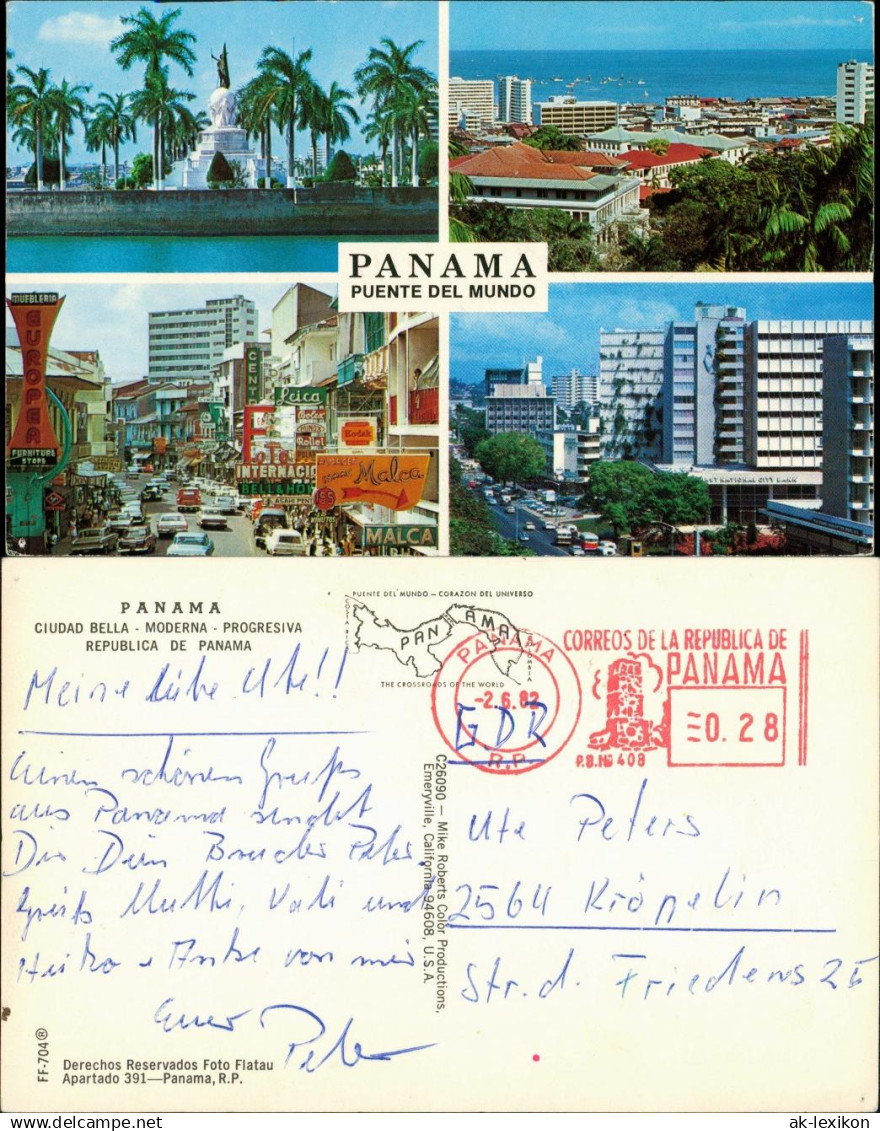 PANAMA
PUENTE DEL MUNDO
MUEBLERIA
EUROPEA
FURNITURE
STORE
CENT
Leica
Rollei
Kodak
INTERNACIO
BELLA HO
ASAHI PENT
Malca
155
MINUTOS
MALCA
FIRST NATIONAL CITY BANK
PANAMA
CIUDAD BELLA - MODERNA - PROGRESIVA
REPUBLICA DE PANAMA
PUENTE DEL MUNDO — CORAZON DEL UNIVERSO
COSTA RICA
PANAMA
COLOMBIA
THE CROSSROADS OF THE WORLD
PANAMA
-2.6.82
R.P.
CORREOS DE LA REPUBLICA DE
PANAMA
0.28
P.B.Nº 408
G.D.R
Meine liebe Ute!!
Einen schönen Gruß
aus Panama sendet
Dir Dein Bruder Peter.
Grüß Mutti, Vati und
Heiko + Antke von mir
Euer Peter
Ute Peters
2564 Kröpelin
Str. d. Friedens 25
C26090 — Mike Roberts Color Productions,
Emeryville, California 94608, U.S.A.
FF-704®
Derechos Reservados Foto Flatau
Apartado 391—Panama, R.P.
ak-ansichtskarten.de